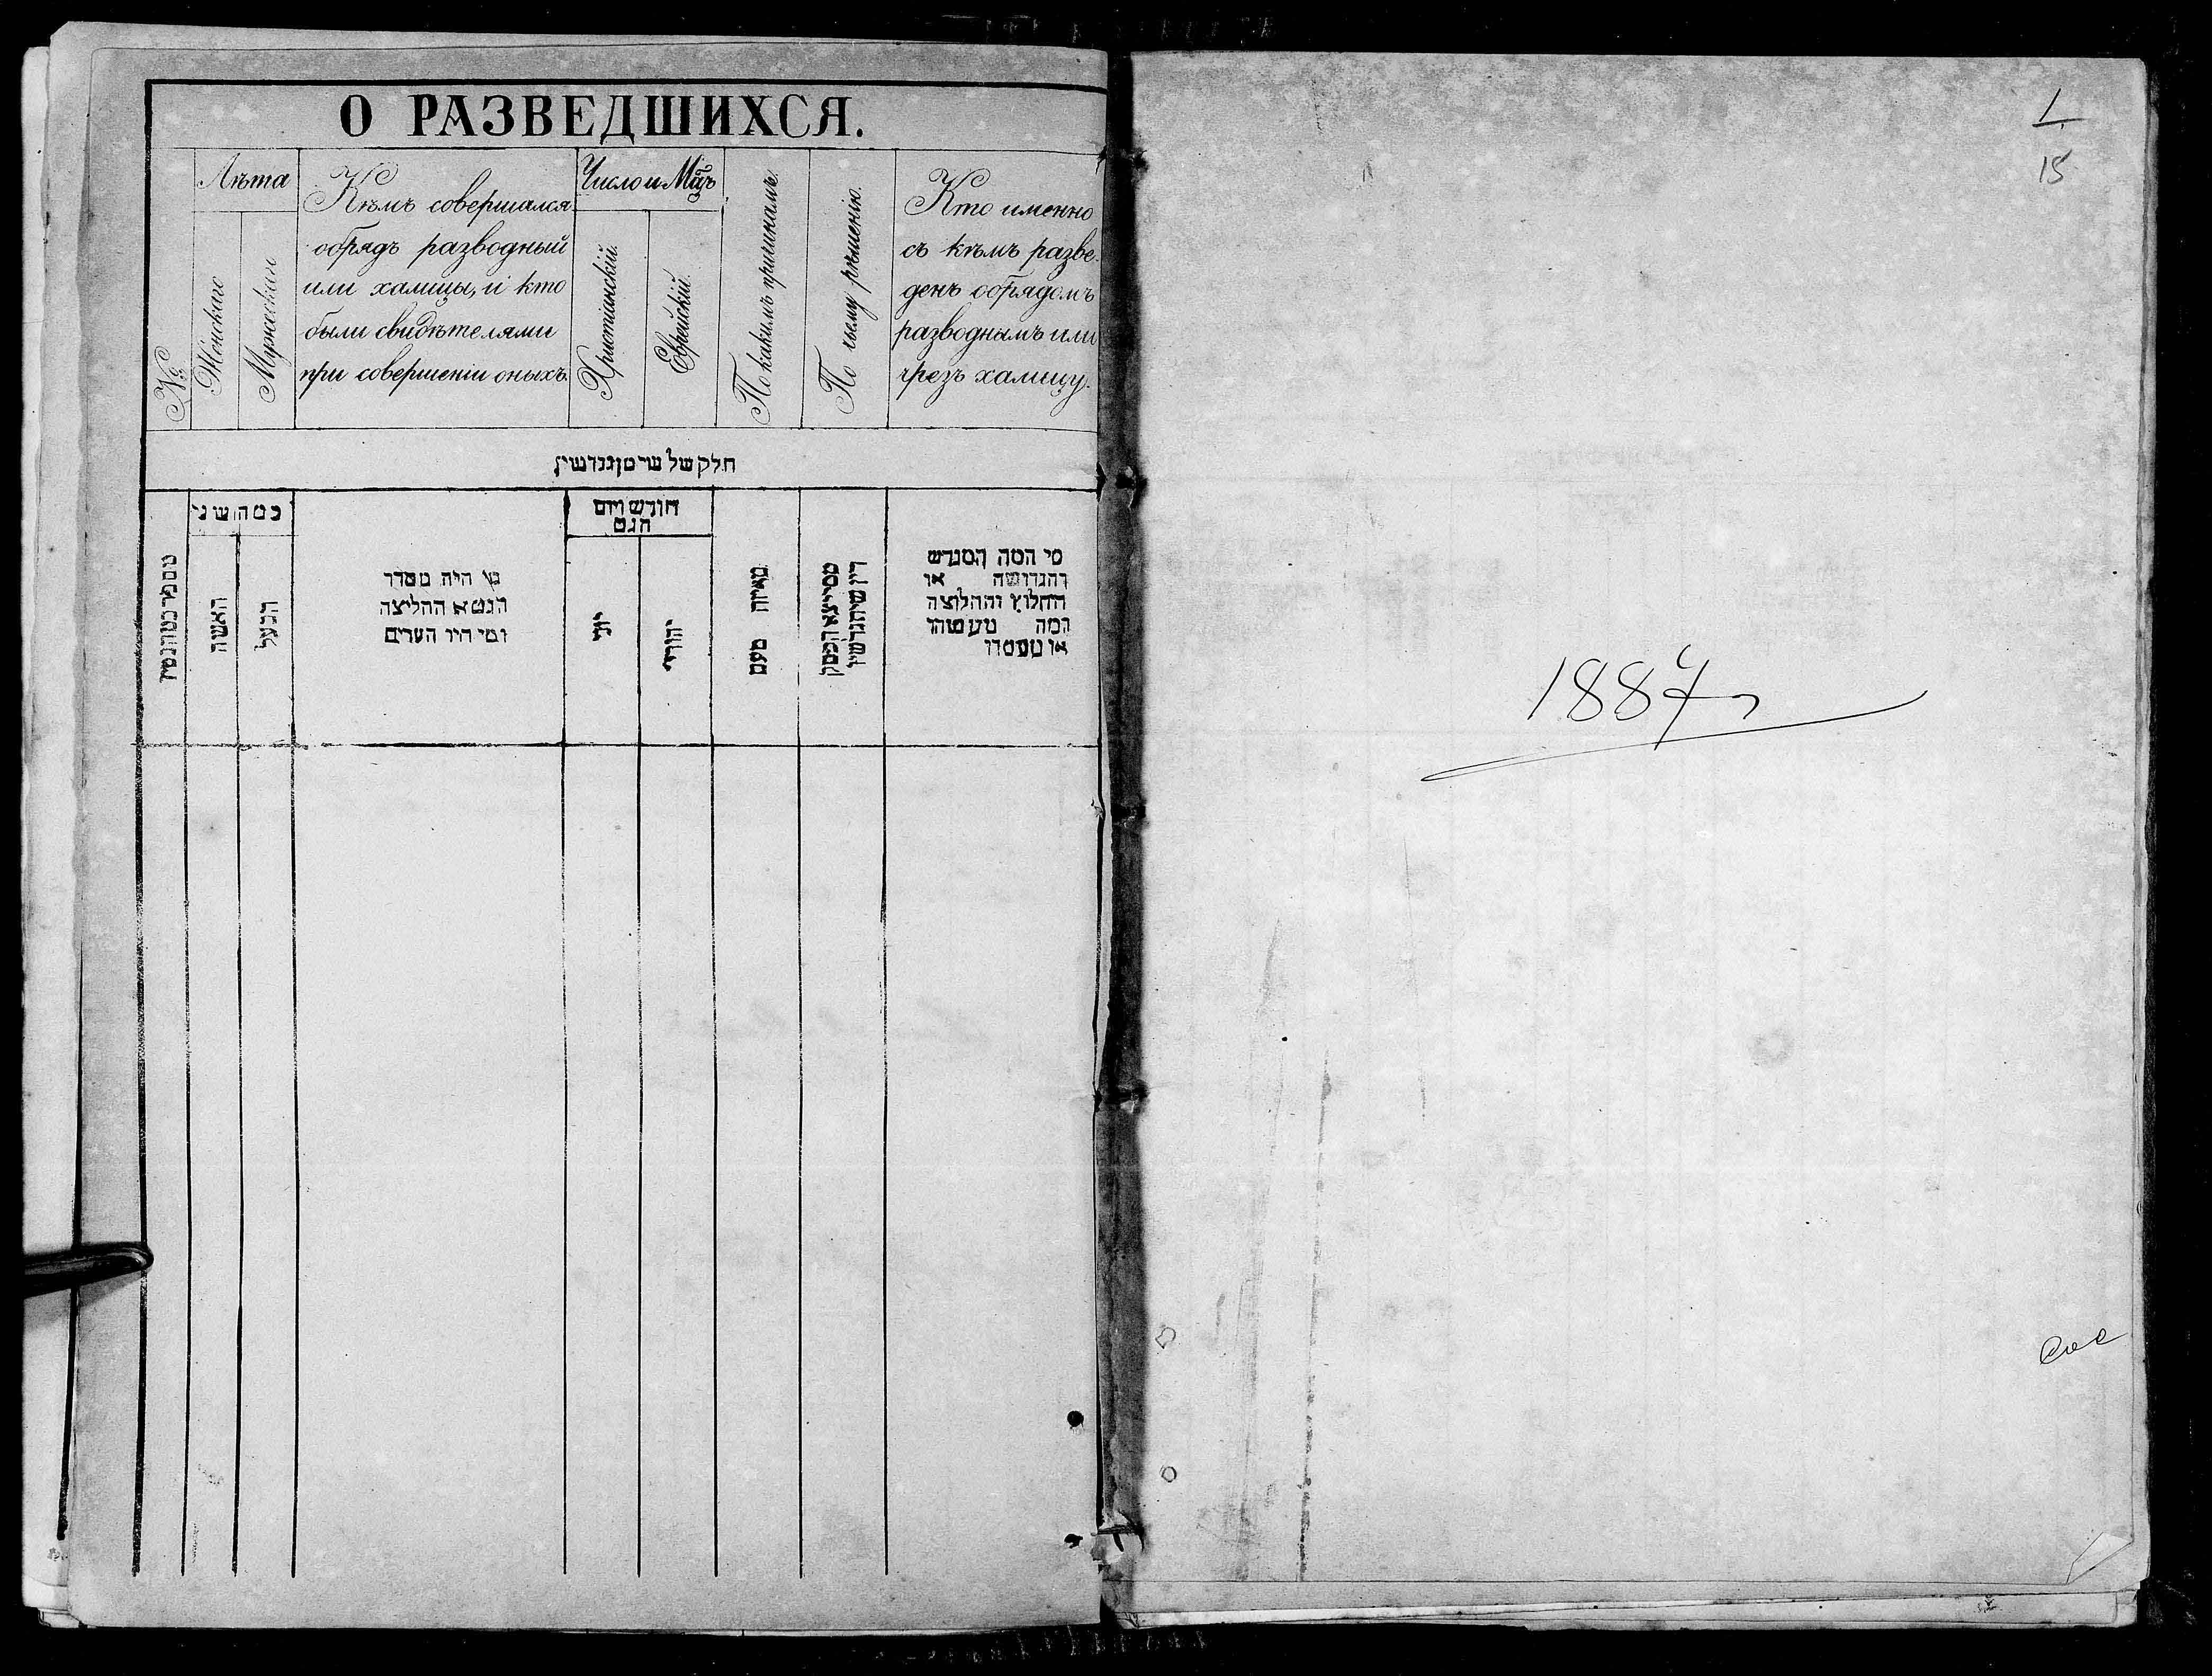 О РАЗВЕДШИХСЯ.
№
Лѣта
Женскаго
Мужескаго
Кѣмъ совершался
обрядъ разводный
или халицы, и кто
были свидѣтелями
при совершеніи оныхъ.
Число и Мѣц
Христіанскій.
Еврейскій.
По какимъ причинамъ.
По чьему рѣшенію.
Кто именно
съ кѣмъ разве-
денъ обрядомъ
разводнымъ или
чрезъ халицу.
חלק של
כמה שני
האשה
הבעל
מי היה מסדר
הגט או החליצה
ומי היו העדים
חודש ויום
הגט
יוני
יהודי
מאיזה טעם
מי המה המגרש
והגרושה או
החלוץ והחלוצה
ומה מעשהו
או מעמדו
1
15
1887